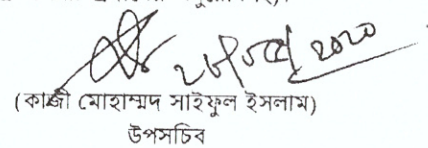 ২০২০
(কাজী মোহাম্মদ সাইফুল ইসলাম)
উপসচিব